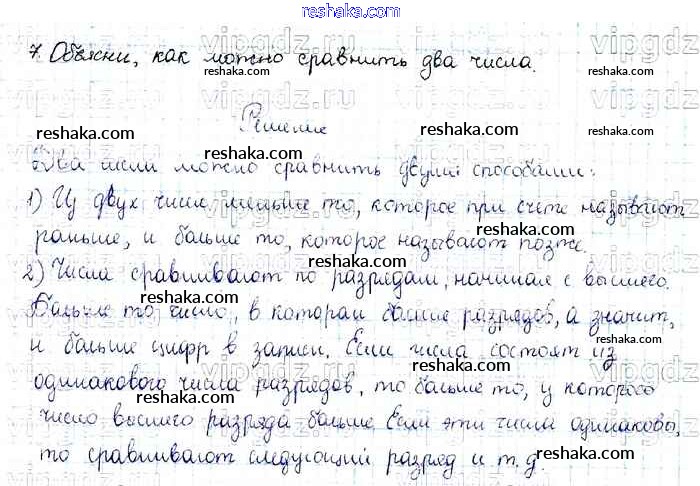 reshaka.com
7. Объясни, как можно сравнить два числа.
Решение
Два числа можно сравнить двумя способами:
1) Из двух чисел меньше то, которое при счёте называют
раньше, и больше то, которое называют позже.
2) Числа сравнивают по разрядам, начиная с высшего.
Больше то число, в котором больше разрядов, а значит,
и больше цифр в записи. Если числа состоят из
одинакового числа разрядов, то больше то, у которого
число высшего разряда больше. Если эти числа одинаковы,
то сравнивают следующий разряд и т.д.
reshaka.com